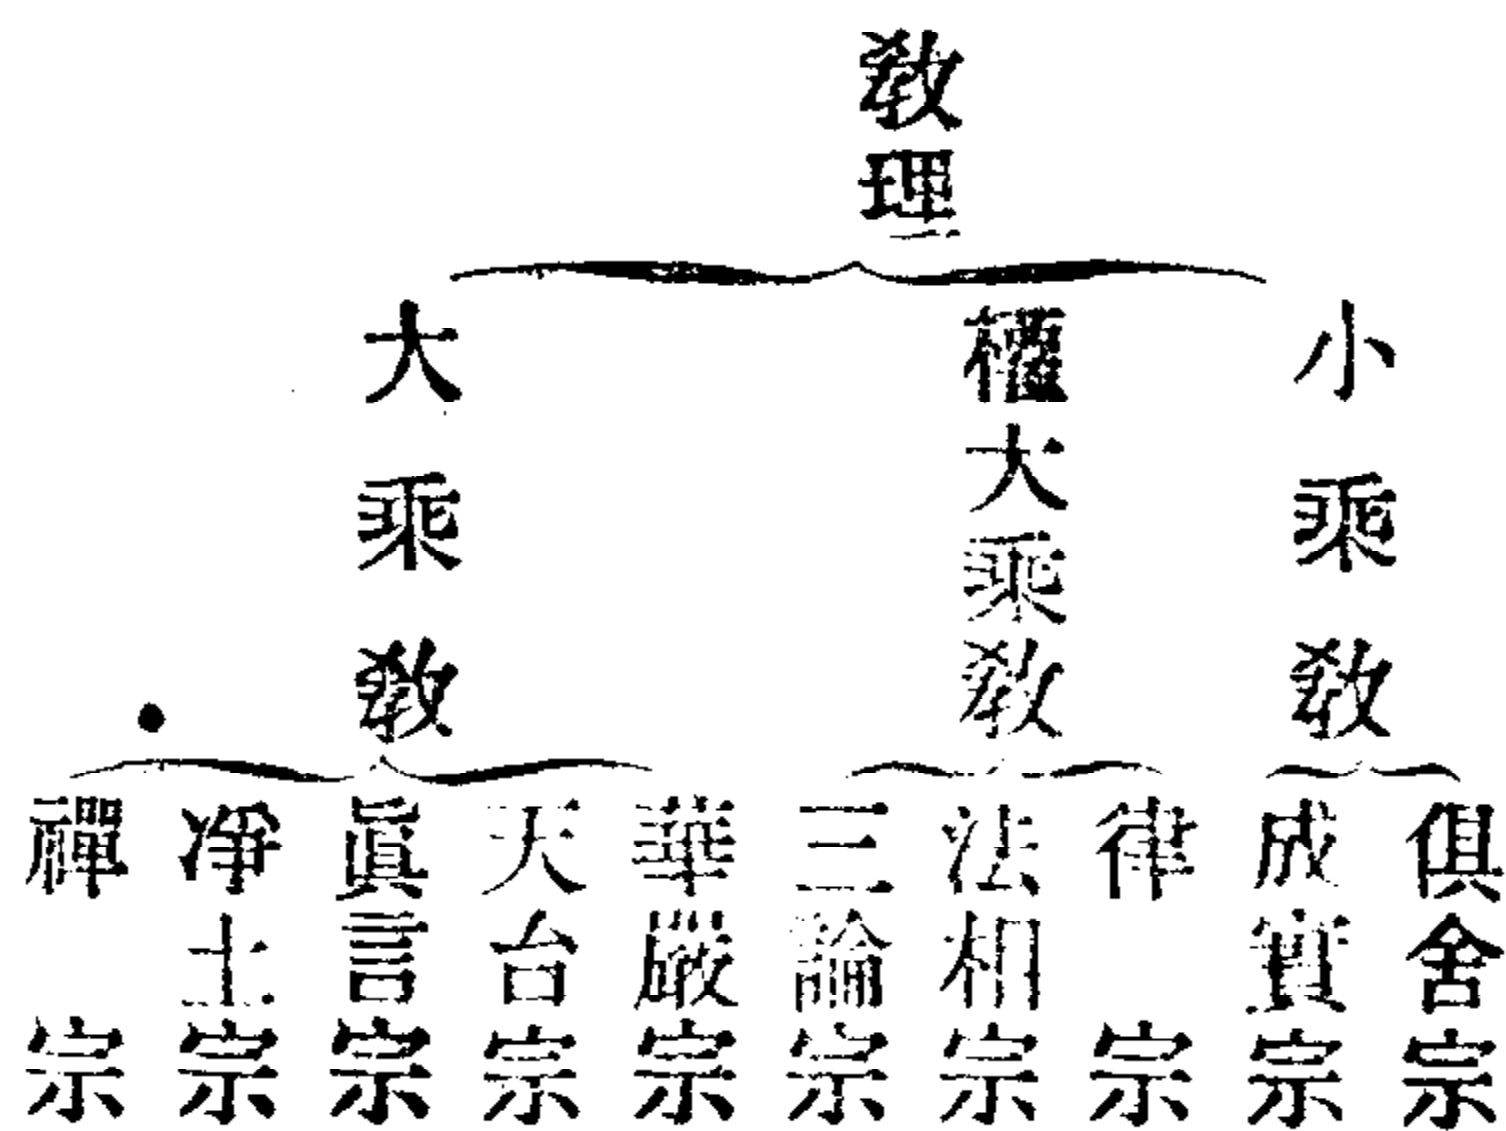 教理
小乘教
權大乘教
大乘教
俱舍宗
成實宗
律宗
法相宗
三論宗
華嚴宗
天台宗
眞言宗
淨土宗
禪宗